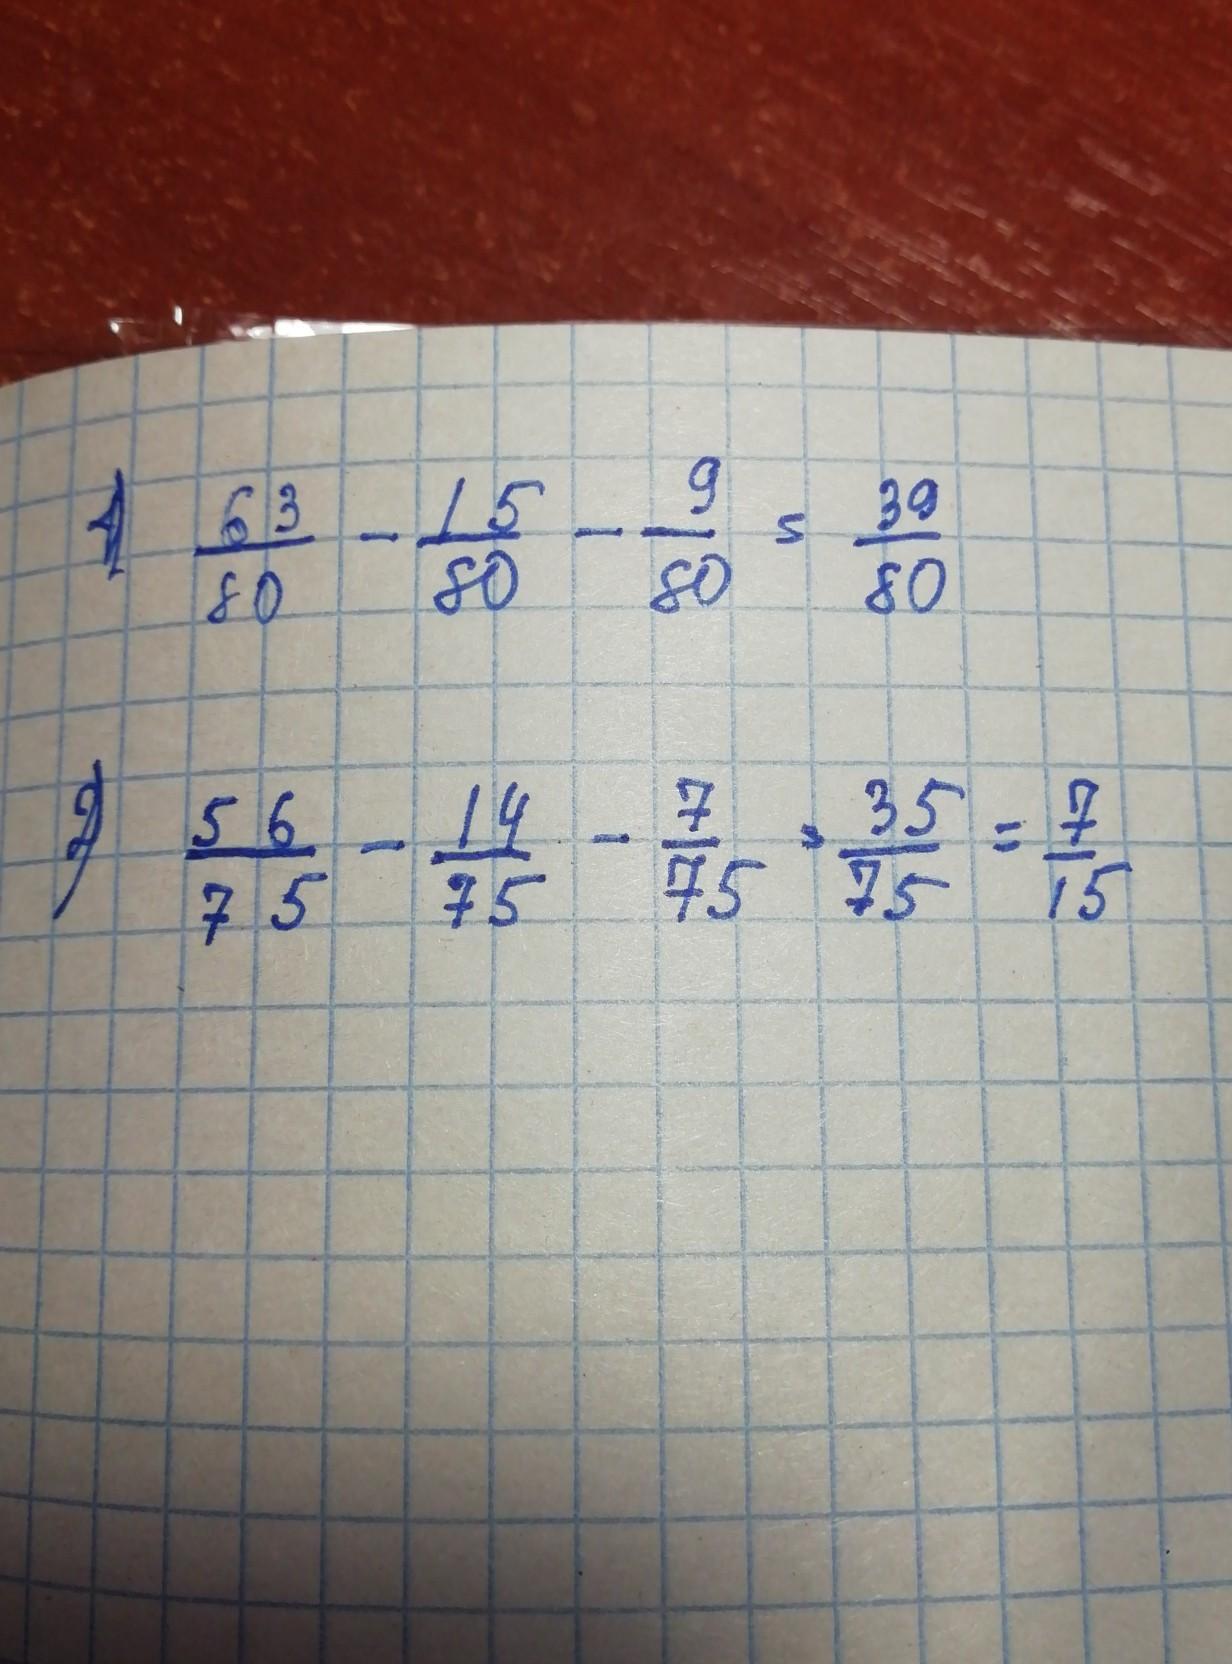 1) 63/80 - 15/80 - 9/80 = 39/80
2) 56/75 - 14/75 - 7/75 = 35/75 = 7/15